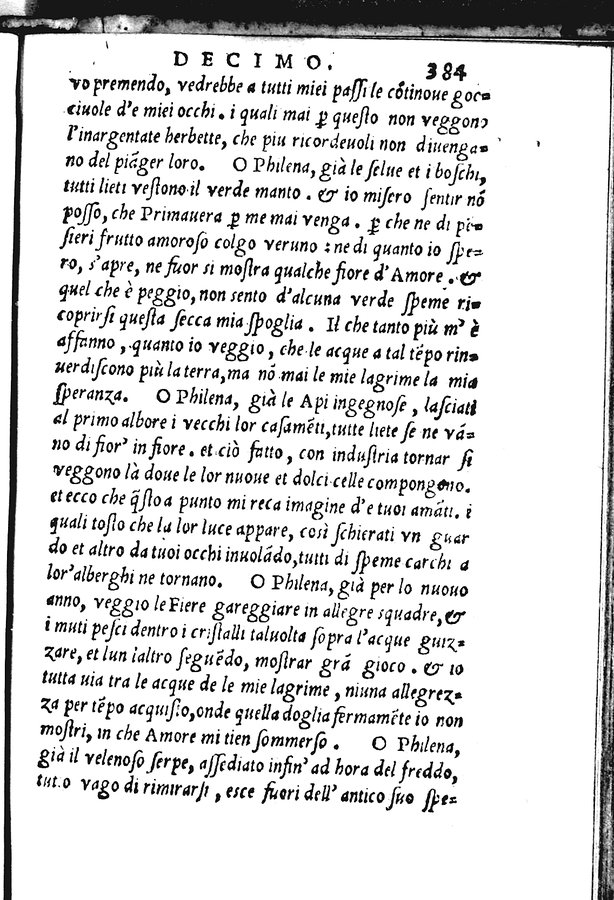 DECIMO. 384
vo premendo, vedrebbe a tutti miei paſſi le cõtinoue goc=
ciuole d'e miei occhi. i quali mai ꝑ queſto non veggono
l'inargentate herbette, che piu ricordeuoli non diuenga=
no del piãger loro. O Philena, già le ſelue et i boſchi,
tutti lieti veſtono il verde manto. & io miſero ſentir nõ
poſſo, che Primauera ꝑ me mai venga. ꝑ che ne di pẽ=
ſieri frutto amoroſo colgo veruno: ne di quanto io ſpe=
ro, s'apre, ne fuor si moſtra qualche fiore d'Amore. &
quel che è peggio, non sento d'alcuna verde ſpeme ri=
coprirſi queſta ſecca mia ſpoglia. Il che tanto più m'è
affanno, quanto io veggio, che le acque a tal tẽpo rin=
uerdiſcono più la terra, ma nõ mai le mie lagrime la mia
ſperanza. O Philena, già le Api ingegnoſe, laſciati
al primo albore i vecchi lor caſamẽti, tutte liete ſe ne vã=
no di fior' in fiore. et ciò fatto, con induſtria tornar ſi
veggono là doue le lor nuoue et dolci celle compongono.
et ecco che q̃ſto a punto mi reca imagine d'e tuoi amãti. i
quali toſto che la lor luce appare, così ſchierati vn guar
do et altro da tuoi occhi inuolãdo, tutti di ſpeme carchi a
lor'alberghi ne tornano. O Philena, già per lo nuouo
anno, veggio le Fiere gareggiare in allegre squadre, &
i muti peſci dentro i criſtalli taluolta ſopra l'acque guiz=
zare, et lun l'altro ſeguẽdo, moſtrar grã gioco. & io
tutta uia tra le acque de le mie lagrime, niuna allegrez=
za per tẽpo acquiſto, onde quella doglia fermamẽte io non
moſtri, in che Amore mi tien ſommerſo. O Philena,
già il velenoſo ſerpe, aſſediato infin' ad hora del freddo,
tutto vago di rimirarſi, eſce fuori dell' antico ſuo ſpe=